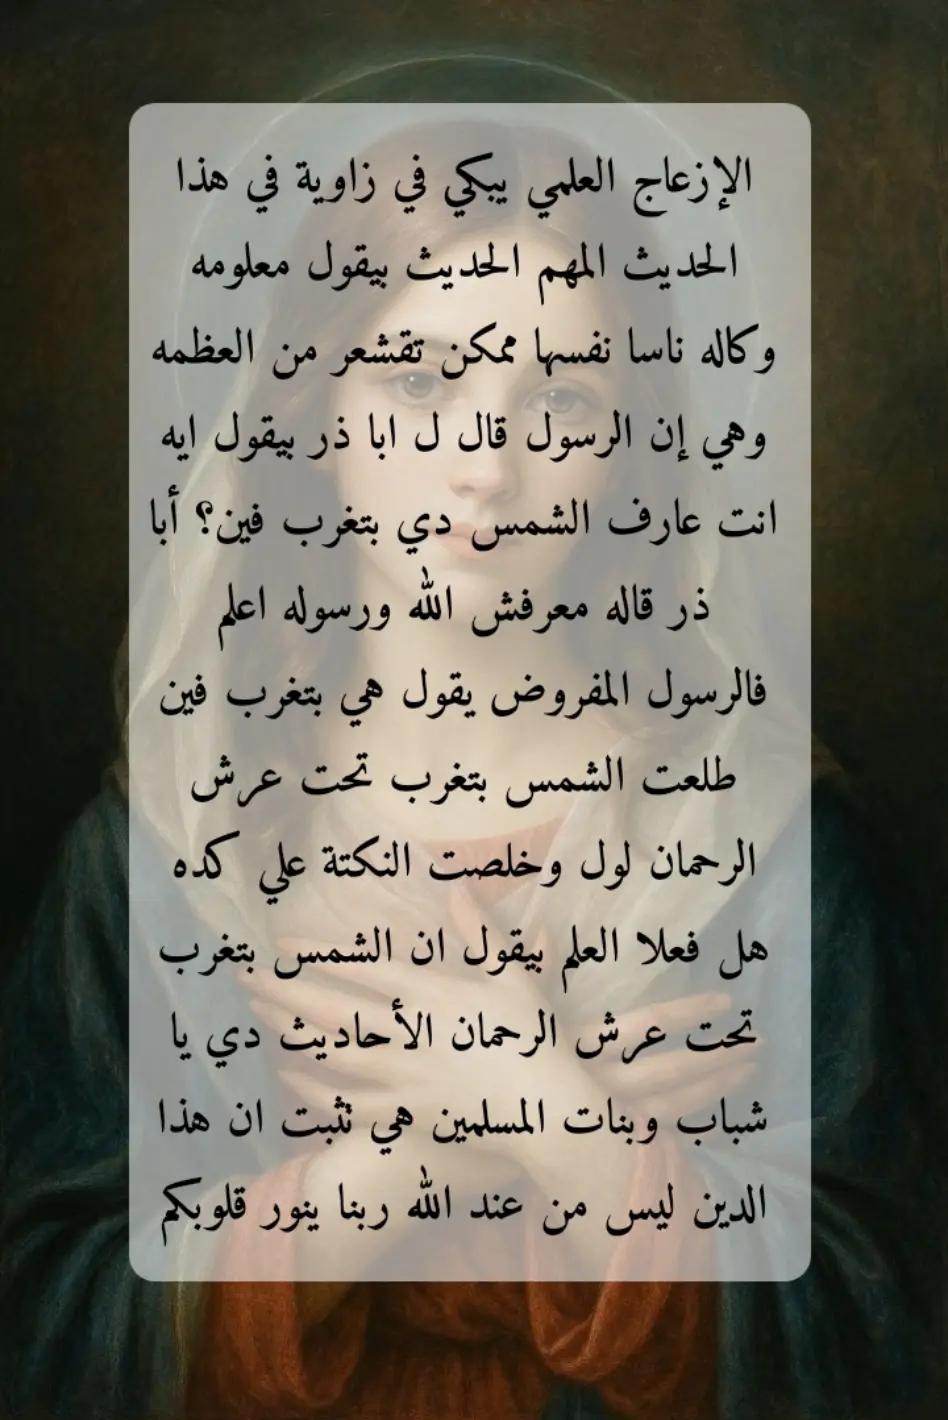 الإزعاج العلمي يبكي في زاوية في هذا
الحديث المهم الحديث بيقول معلومه
وكاله ناسا نفسها ممكن تقشعر من العظمه
وهي إن الرسول قال ل ابا ذر بيقول ايه
انت عارف الشمس دي بتغرب فين؟ أبا
ذر قاله معرفش الله ورسوله اعلم
فالرسول المفروض يقول هي بتغرب فين
طلعت الشمس بتغرب تحت عرش
الرحمان لول وخلصت النكتة علي كده
هل فعلا العلم بيقول ان الشمس بتغرب
تحت عرش الرحمان الأحاديث دي يا
شباب وبنات المسلمين هي تثبت ان هذا
الدين ليس من عند الله ربنا ينور قلوبكم